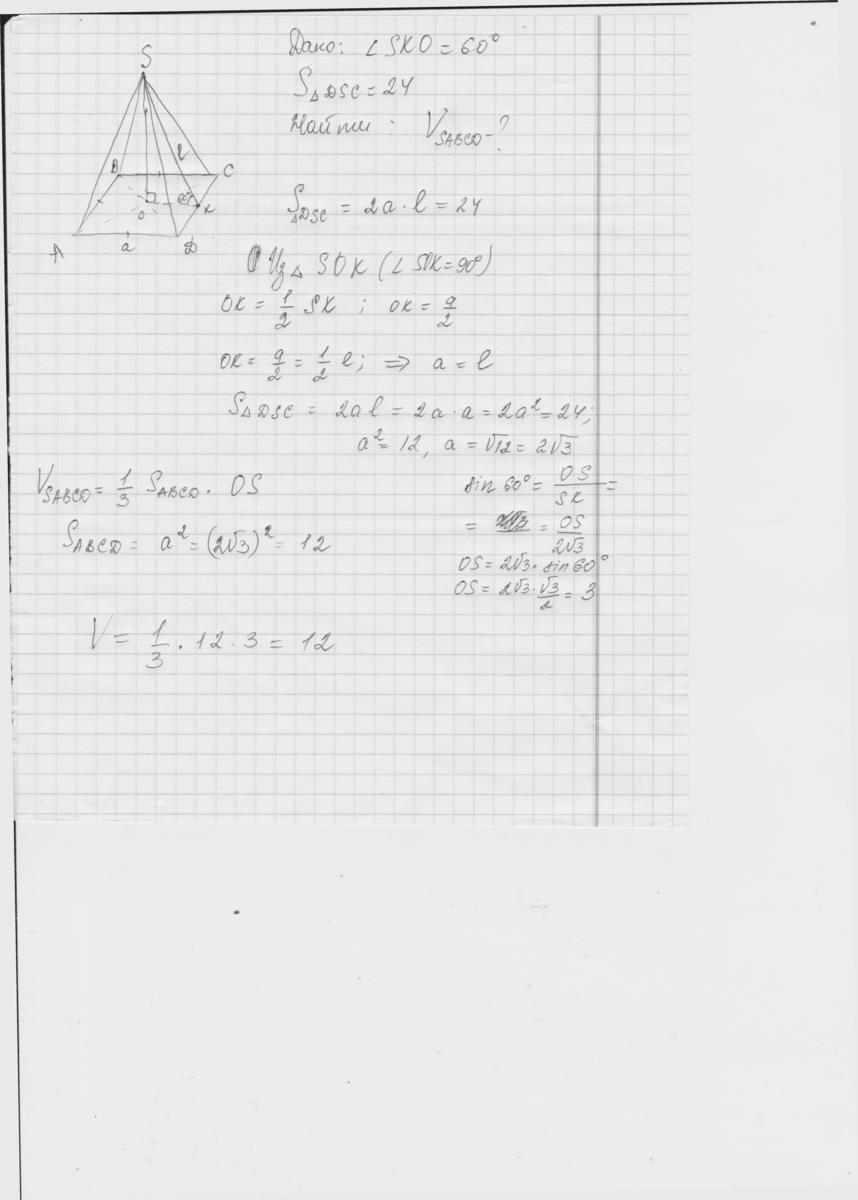 Дано: ∠ SKO = 60°
S△DSC = 24
Найти : V SABCD - ?
S
B
C
l
60°
K
O
A
a
D
S△DSC = 2a · l = 24
Из △ SOK (∠ SOK = 90°)
OK = 1/2 SK ; OK = a/2
OK = a/2 = 1/2 l; ⇒ a = l
S△DSC = 2al = 2a · a = 2a² = 24;
a² = 12, a = √12 = 2√3
V SABCD = 1/3 S ABCD · OS
S ABCD = a² = (2√3)² = 12
sin 60° = OS/SK =
= = OS/2√3
OS = 2√3 · sin 60°
OS = 2√3 · √3/2 = 3
V = 1/3 · 12 · 3 = 12